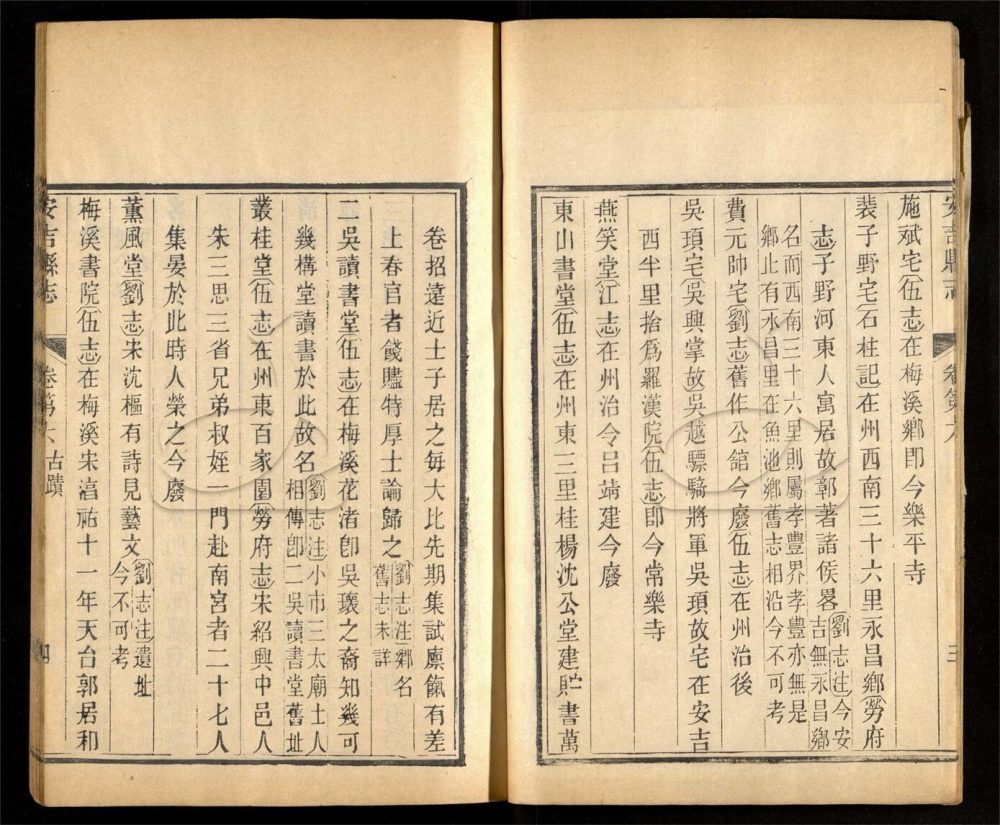 安吉縣志 卷第六 三
施斌宅伍志在梅溪鄉卽今樂平寺
裴子野宅石柱記在州西南三十六里永昌鄉勞府
志子野河東人寓居故鄣著諸侯畧劉志注今安吉無永昌鄉
名而西南三十六里則屬孝豐界孝豐亦無是
鄉止有永昌里在魚池鄉舊志相沿今不可考
費元帥宅劉志舊作公館今廢伍志在州治後
吳頊宅吳興掌故吳越驃騎將軍吳頊故宅在安吉
西半里捨爲羅漢院伍志卽今常樂寺
燕笑堂江志在州治令呂靖建今廢
東山書堂伍志在州東三里桂楊沈公堂建貯書萬
卷招遠近士子居之每大比先期集試廪餼有差
上春官者餞贐特厚士論歸之劉志注鄉名舊志未詳
二吳讀書堂伍志在梅溪花渚卽吳瓌之裔知幾可
幾構堂讀書於此故名劉志注小市三太廟士人相傳卽二吳讀書堂舊址
叢桂堂伍志在州東百家園勞府志宋紹興中邑人
朱三思三省兄弟叔姪一門赴南宮者二十七人
集宴於此時人榮之今廢
薰風堂劉志宋沈樞有詩見藝文劉志注遺址今不可考
梅溪書院伍志在梅溪宋湻祐十一年天台郭居和
安吉縣志 卷第六 古蹟 四